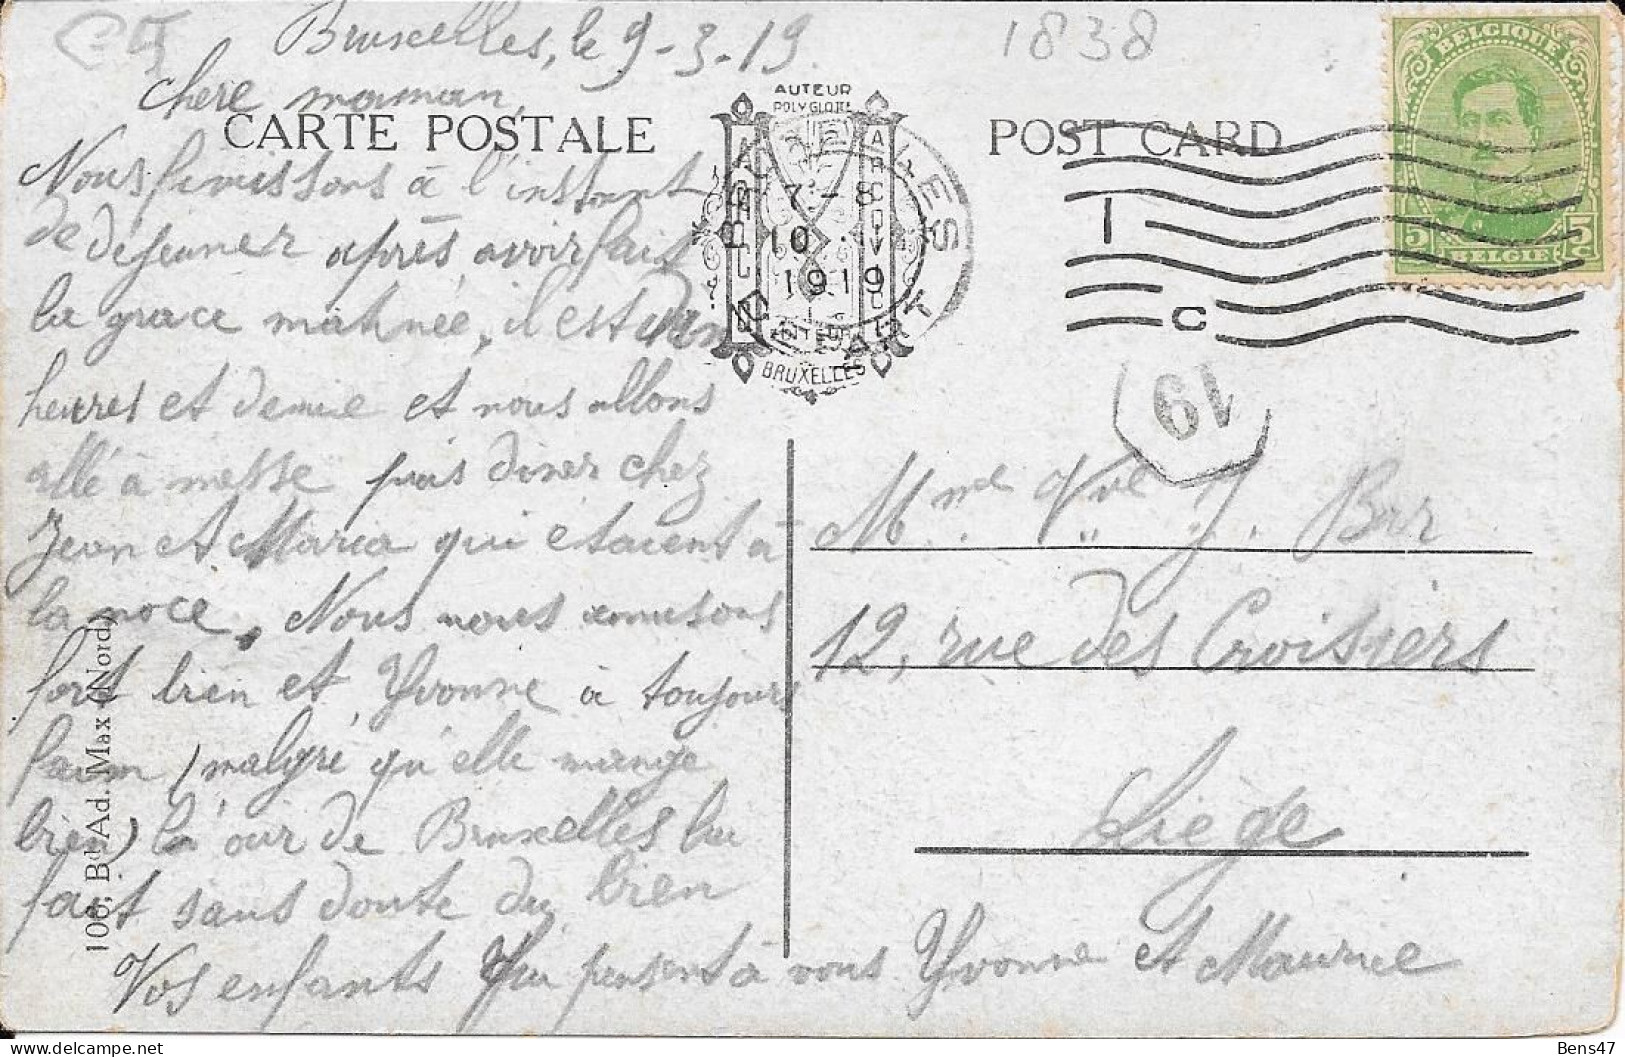 1838
Bruxelles, le 9-3-19
chere maman,
CARTE POSTALE
POST CARD
Nous finissons à l'instant
de déjeuner après avoir fait
la grace matinée, il est
heures et demie et nous allons
allé à messe puis diner chez
Jean et Maria qui etaient à
la noce. Nous nous amusons
fort bien et Yvonne à toujours
faim (malgré qu'elle mange
bien) la de Bruxelles lui
fait sans doute du bien
Vos enfants qui pensent à vous Yvonne et Maurice
AUTEUR
POLYGLOTTE
ARCOOV
7-8
10
1919
BRUXELLES
1
C
BELGIQUE
5c
BELGIE
19
Mme Vve J.
12, rue des Croisiers
Liège
106, Bd Ad. Max (Nord)
Bens47